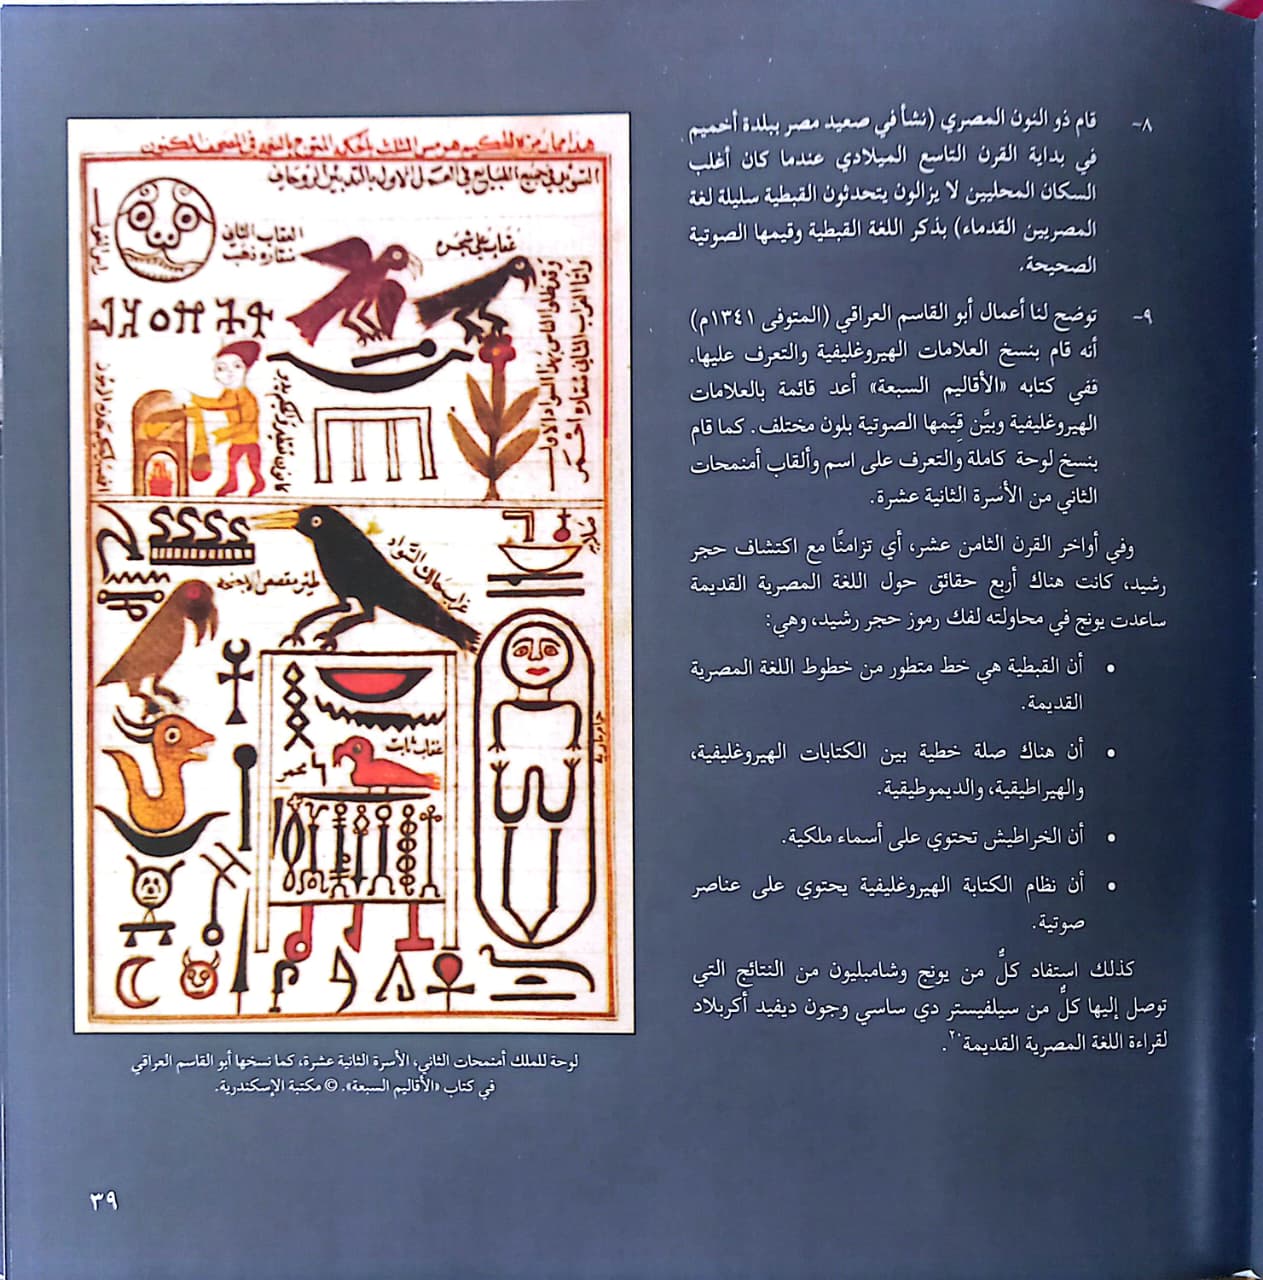 ٨- قام ذو النون المصري (نشأ في صعيد مصر ببلدة أخميم
في بداية القرن التاسع الميلادي عندما كان أغلب
السكان المحليين لا يزالون يتحدثون القبطية سليلة لغة
المصريين القدماء) بذكر اللغة القبطية وقيمها الصوتية
الصحيحة.
٩- توضح لنا أعمال أبو القاسم العراقي (المتوفى ١٣٤١م)
أنه قام بنسخ العلامات الهيروغليفية والتعرف عليها.
ففي كتابه «الأقاليم السبعة» أعد قائمة بالعلامات
الهيروغليفية وبيَّن قِيَمها الصوتية بلون مختلف. كما قام
بنسخ لوحة كاملة والتعرف على اسم وألقاب أمنمحات
الثاني من الأسرة الثانية عشرة.
وفي أواخر القرن الثامن عشر، أي تزامنًا مع اكتشاف حجر
رشيد، كانت هناك أربع حقائق حول اللغة المصرية القديمة
ساعدت يونج في محاولته لفك رموز حجر رشيد، وهي:
• أن القبطية هي خط متطور من خطوط اللغة المصرية
القديمة.
• أن هناك صلة خطية بين الكتابات الهيروغليفية،
والهيراطيقية، والديموطيقية.
• أن الخراطيش تحتوي على أسماء ملكية.
• أن نظام الكتابة الهيروغليفية يحتوي على عناصر
صوتية.
كذلك استفاد كلٌّ من يونج وشامبليون من النتائج التي
توصل إليها كلٌّ من سيلفيستر دي ساسي وجون ديفيد أكربلاد
لقراءة اللغة المصرية القديمة٢٠.
العقاب الثاني
منتاره ذهب
عقاب على شجره
غراب حالك السواد
طير مقصص الاجنحه
عقاب ثابت
لوحة للملك أمنمحات الثاني، الأسرة الثانية عشرة، كما نسخها أبو القاسم العراقي
في كتاب «الأقاليم السبعة». © مكتبة الإسكندرية.
٣٩